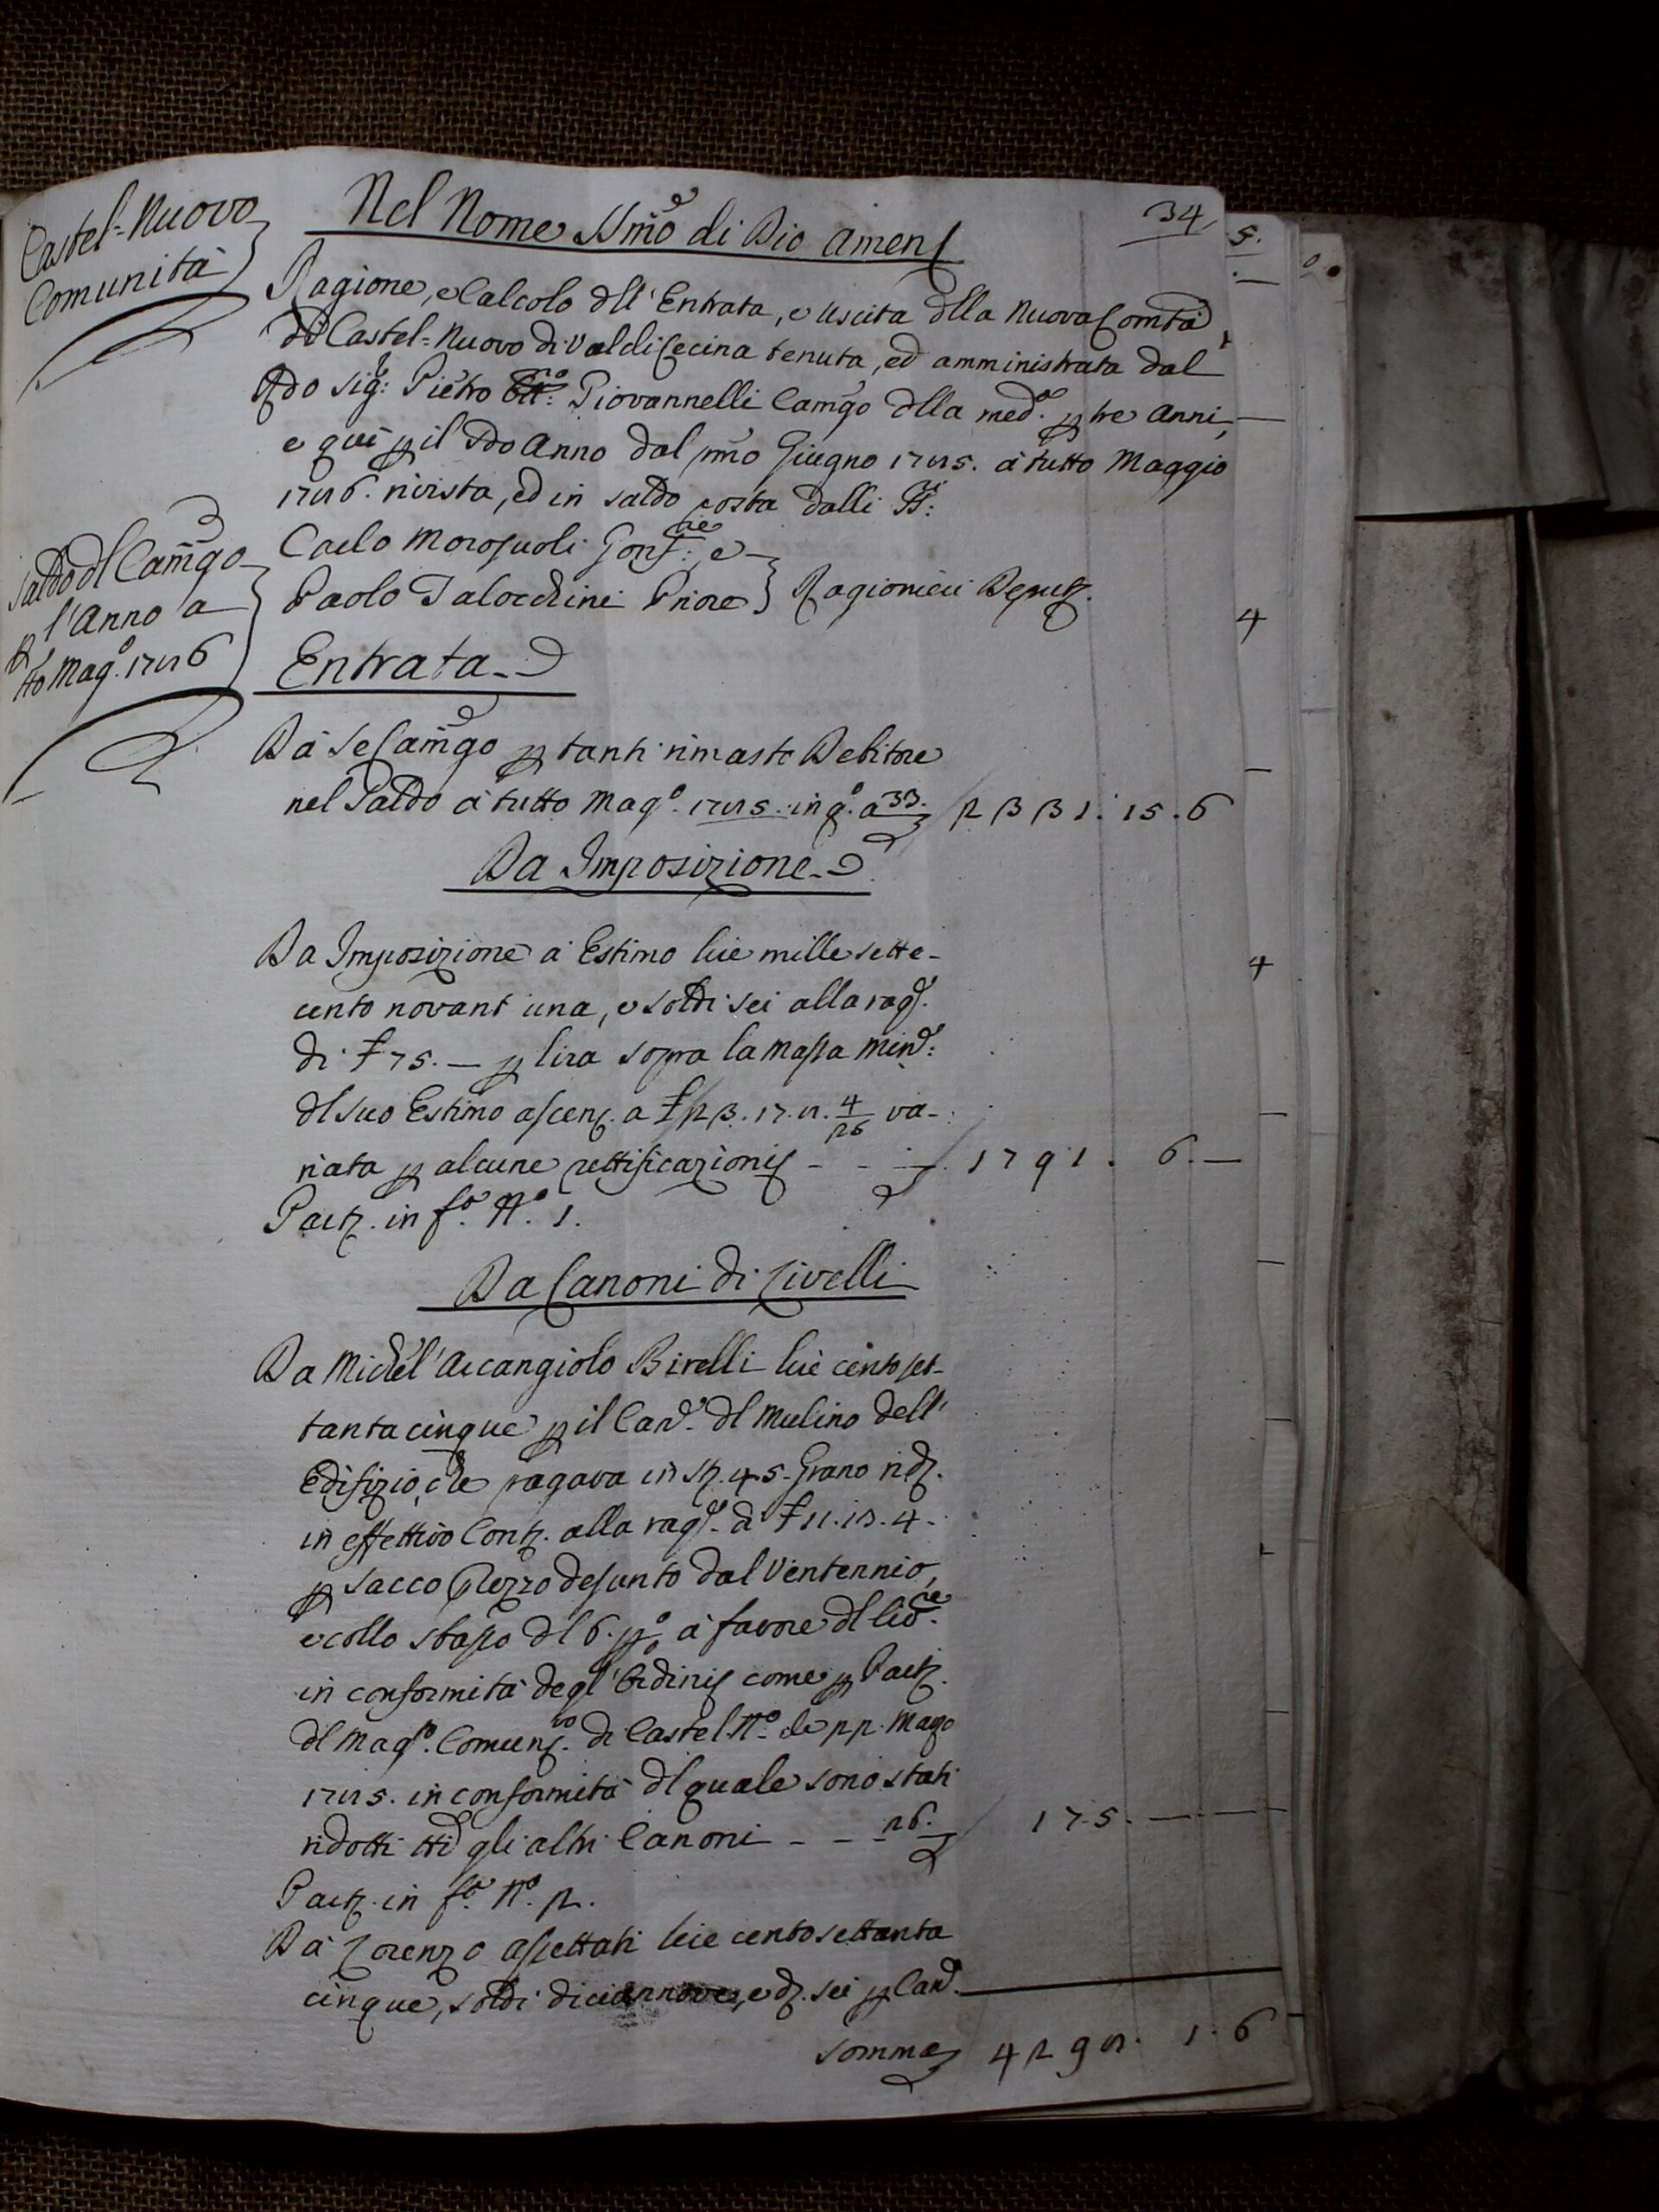 34
Castel=Nuovo
Comunità
Nel Nome SSmo di Dio Amen
Ragione, e Calcolo dll' Entrata, e uscita dlla Nuova Comtà
dl Castel=Nuovo di Val di Cecina tenuta, ed amministrata dal
Pietro Giovannelli Camgo dlla med.º p tre Anni,
e qui p il Anno dal pmo Giugno 1785. a tutto Maggio
1786. rivista, ed in saldo posta dalli SS:ri
Saldo dl Camgo
p l'Anno a
tto Mag.º 1786
Carlo Morosuoli Gonf:re, e
Paolo Talocchini Priore } Ragionieri Deputi.
Entrata
Da Se Camgo p tanti rimasto Debitore
nel Saldo a tutto Mag.º 1785. in qº. a 33. 2331. 15. 6
Da Imposizione
Da Imposizione a Estimo lire mille sette-
cento novant'una, e soldi sei alla rag.e
di £ 75. — p lira sopra la Massa min.e:
dl suo Estimo ascen. a £ 23. 17. 8. 4/25 va-
riata p alcune rettificazioni - - - 1791. 6. —
Part. in f.º N.º 1.
Da Canoni di Livelli
Da Michel'Arcangiolo Birelli lire cento set-
tantacinque p il Can.e dl Mulino dell'
Edifizio, che pagava in St. 45. Grano rid.
in effettivo Cont. alla rag.e di £ 11. 13. 4.
p sacco prezzo desunto dal Ventennio,
e collo sbasso dl 6. pº. a favore dl
in conformità degl'Ordini come p Part.
dl Mag.º Comun.vo di Castel N.º de 22. Mago
1785. in conformità dl quale sono stati
ridotti tti gli altri Canoni - - - 26. 175. — —
Part. in f.º N.º 2.
Da Lorenzo Aspettati lire cento settanta
cinque, soldi diciannove, e d. sei p Can.e
Somma 4298. 1. 6